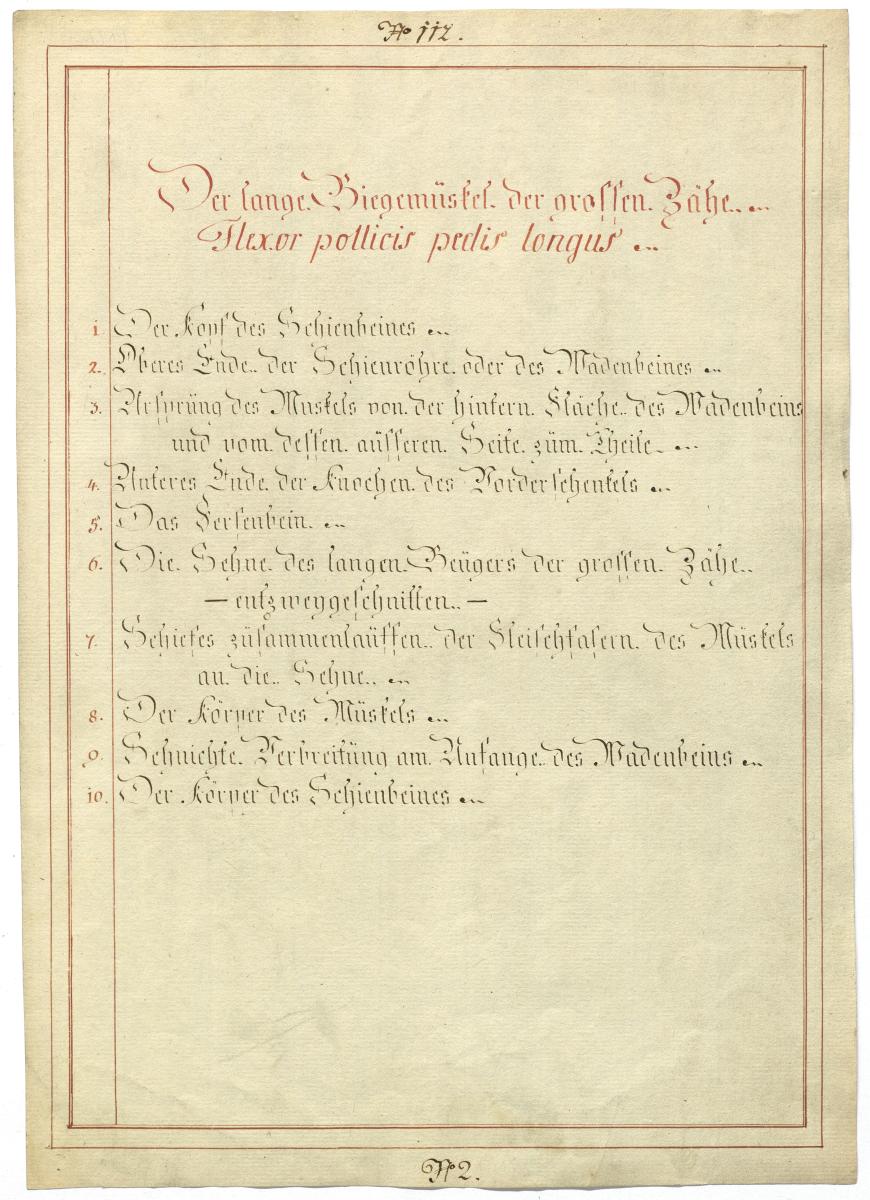 No 112.
Der lange Biegemüskel der grossen Zähe
Flexor pollicis pedis longus
1. Der Kopf des Schienbeines
2. Oberes Ende der Schienröhre oder des Wadenbeines
3. Ursprüng des Muskels von der hintern Fläche des Wadenbeins
und vom dessen aüsseren Seite züm Theile
4. Unteres Ende der Knochen des Vorderschenkels
5. Das Fersenbein
6. Die Sehne des langen Beügers der grossen Zähe
— entzweygeschnitten —
7. Schiefes züsammenlaüffen der Fleischfasern des Müskels
an die Sehne
8. Der Körper des Müskels
9. Sehnichte Verbreitüng am Anfange des Wadenbeins
10. Der Körper des Schienbeines
No 2.